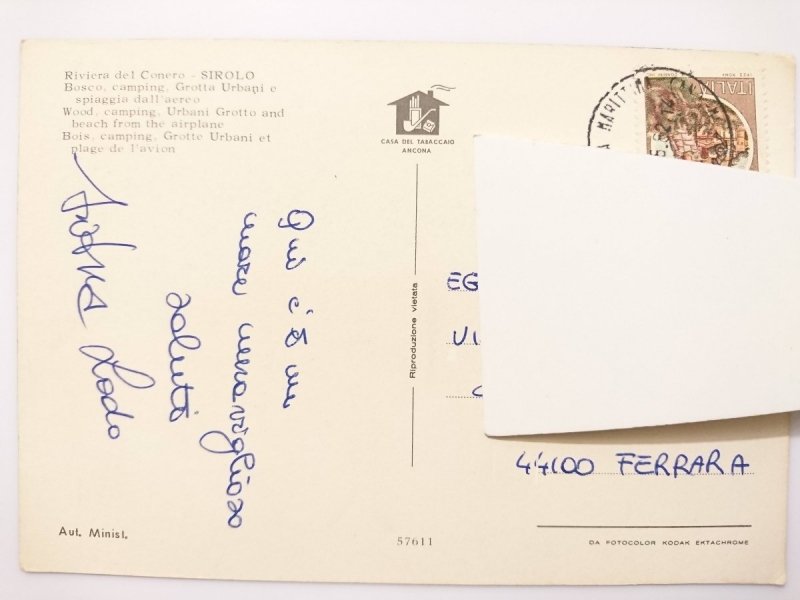 Riviera del Conero - SIROLO
Bosco, camping, Grotta Urbani e
spiaggia dall'aereo
Wood, camping, Urbani Grotto and
beach from the airplane
Bois, camping, Grotte Urbani et
plage de l'avion
CASA DEL TABACCAIO
ANCONA
ITALIA
MARITTIMA
Qui c'è un
mare meraviglioso
saluti
Riproduzione vietata
EG
VI
44100 FERRARA
Aut. Minist.
57611
DA FOTOCOLOR KODAK EKTACHROME